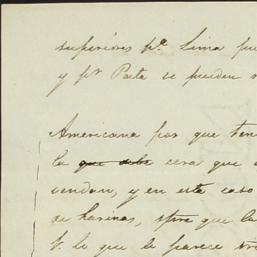 superiores pa. Lima pu
y pr. Paita se pueden
Americana por que ten
la que debe cera que
vendan, y en este caso
de harinas, spre que la
lo que le parece